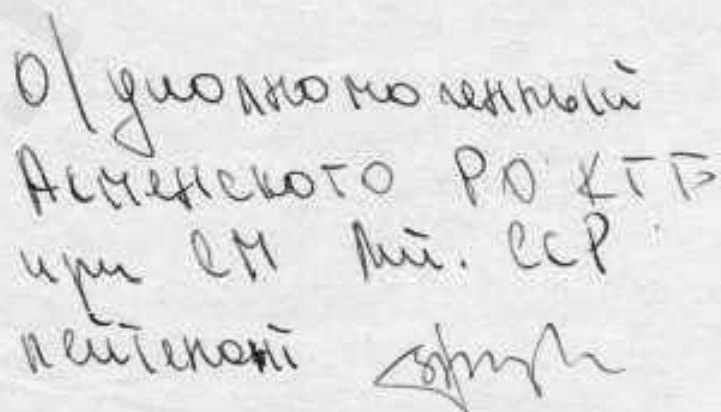 О/уполномоченный
Акменского РО КГБ
при СМ Лит. ССР
лейтенант